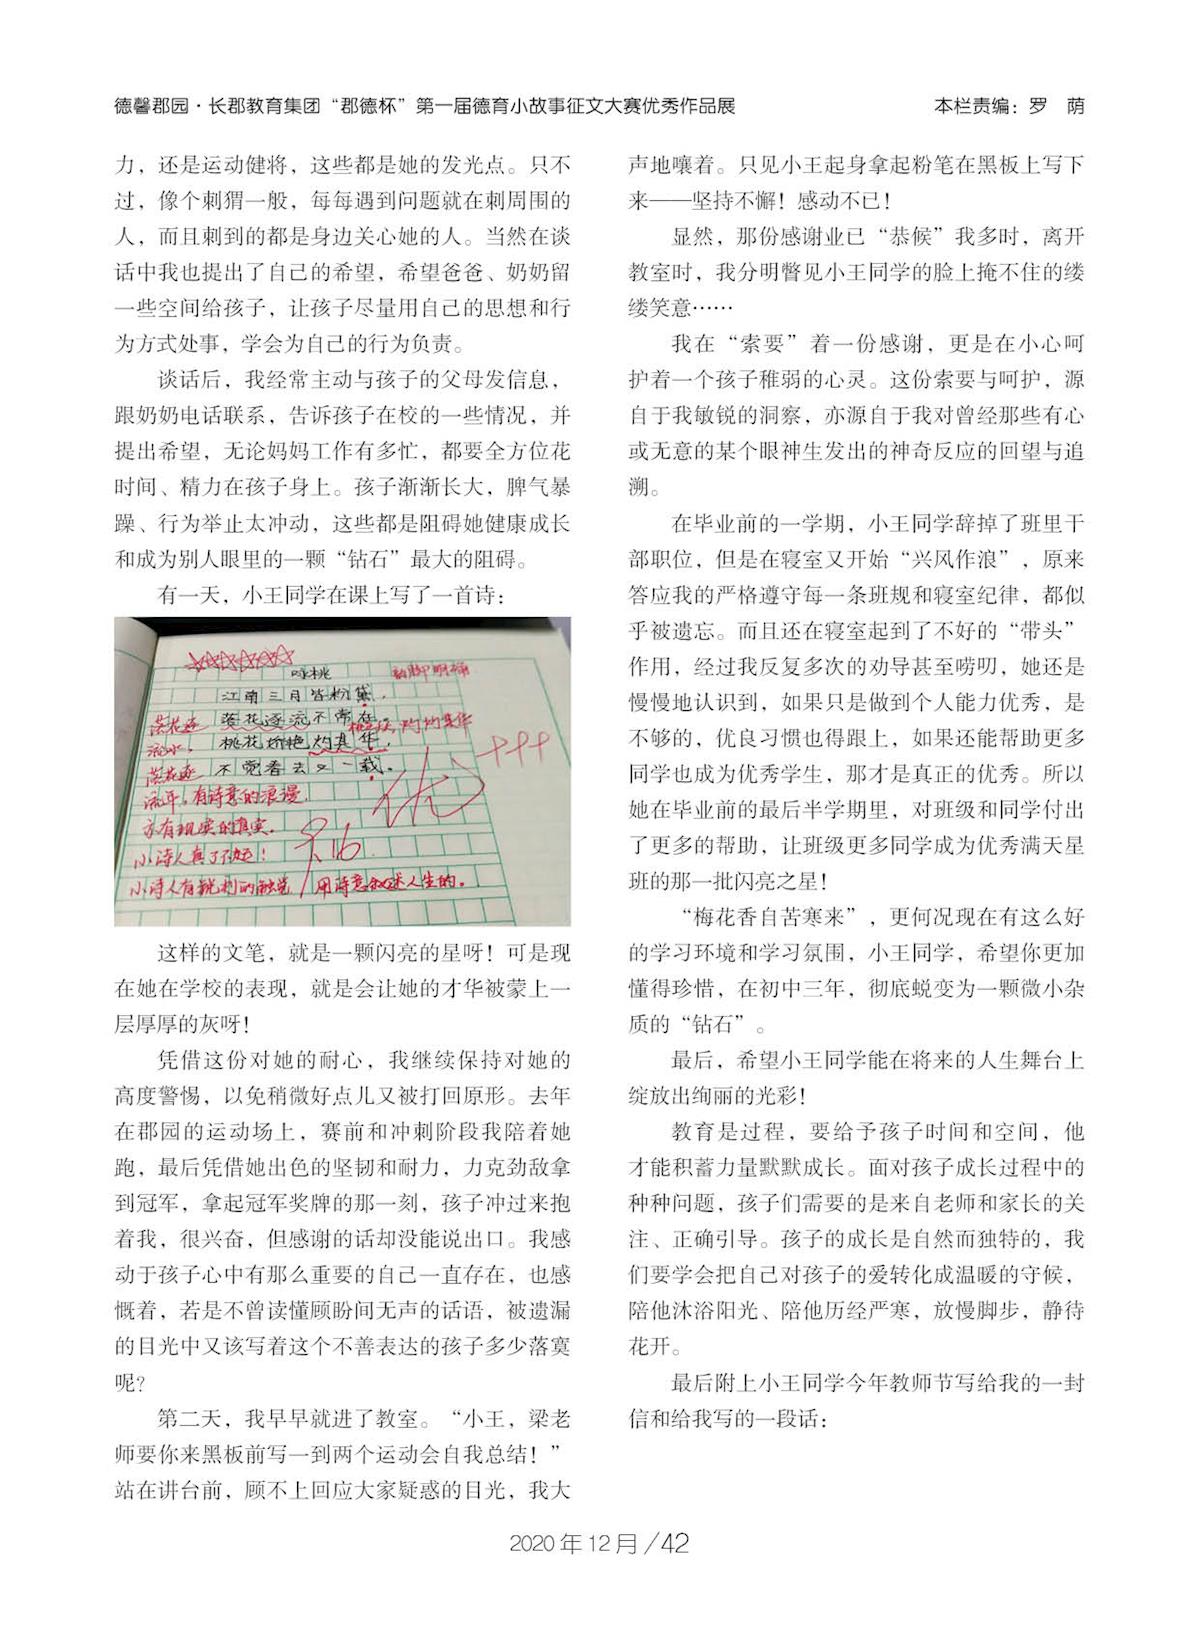 德馨郡园·长郡教育集团“郡德杯”第一届德育小故事征文大赛优秀作品展
本栏责编：罗 荫
力，还是运动健将，这些都是她的发光点。只不
过，像个刺猬一般，每每遇到问题就在刺周围的
人，而且刺到的都是身边关心她的人。当然在谈
话中我也提出了自己的希望，希望爸爸、奶奶留
一些空间给孩子，让孩子尽量用自己的思想和行
为方式处事，学会为自己的行为负责。
谈话后，我经常主动与孩子的父母发信息，
跟奶奶电话联系，告诉孩子在校的一些情况，并
提出希望，无论妈妈工作有多忙，都要全方位花
时间、精力在孩子身上。孩子渐渐长大，脾气暴
躁、行为举止太冲动，这些都是阻碍她健康成长
和成为别人眼里的一颗“钻石”最大的阻碍。
有一天，小王同学在课上写了一首诗：
咏桃
韵脚明确
江南三月皆粉黛，
落花逐流不常在。
桃花娇艳灼其华，
不觉春去又一载。
落花逐
流水，
落花逐
流年，有诗意的浪漫
亦有现实的真实。
小诗人真了不起！
小诗人有锐利的触觉
用诗意叙述人生的。
优
+++
这样的文笔，就是一颗闪亮的星呀！可是现
在她在学校的表现，就是会让她的才华被蒙上一
层厚厚的灰呀！
凭借这份对她的耐心，我继续保持对她的
高度警惕，以免稍微好点儿又被打回原形。去年
在郡园的运动场上，赛前和冲刺阶段我陪着她
跑，最后凭借她出色的坚韧和耐力，力克劲敌拿
到冠军，拿起冠军奖牌的那一刻，孩子冲过来抱
着我，很兴奋，但感谢的话却没能说出口。我感
动于孩子心中有那么重要的自己一直存在，也感
慨着，若是不曾读懂顾盼间无声的话语，被遗漏
的目光中又该写着这个不善表达的孩子多少落寞
呢？
第二天，我早早就进了教室。“小王，梁老
师要你来黑板前写一到两个运动会自我总结！”
站在讲台前，顾不上回应大家疑惑的目光，我大
声地嚷着。只见小王起身拿起粉笔在黑板上写下
来——坚持不懈！感动不已！
显然，那份感谢业已“恭候”我多时，离开
教室时，我分明瞥见小王同学的脸上掩不住的缕
缕笑意……
我在“索要”着一份感谢，更是在小心呵
护着一个孩子稚弱的心灵。这份索要与呵护，源
自于我敏锐的洞察，亦源自于我对曾经那些有心
或无意的某个眼神生发出的神奇反应的回望与追
溯。
在毕业前的一学期，小王同学辞掉了班里干
部职位，但是在寝室又开始“兴风作浪”，原来
答应我的严格遵守每一条班规和寝室纪律，都似
乎被遗忘。而且还在寝室起到了不好的“带头”
作用，经过我反复多次的劝导甚至唠叨，她还是
慢慢地认识到，如果只是做到个人能力优秀，是
不够的，优良习惯也得跟上，如果还能帮助更多
同学也成为优秀学生，那才是真正的优秀。所以
她在毕业前的最后半学期里，对班级和同学付出
了更多的帮助，让班级更多同学成为优秀满天星
班的那一批闪亮之星！
“梅花香自苦寒来”，更何况现在有这么好
的学习环境和学习氛围，小王同学，希望你更加
懂得珍惜，在初中三年，彻底蜕变为一颗微小杂
质的“钻石”。
最后，希望小王同学能在将来的人生舞台上
绽放出绚丽的光彩！
教育是过程，要给予孩子时间和空间，他
才能积蓄力量默默成长。面对孩子成长过程中的
种种问题，孩子们需要的是来自老师和家长的关
注、正确引导。孩子的成长是自然而独特的，我
们要学会把自己对孩子的爱转化成温暖的守候，
陪他沐浴阳光、陪他历经严寒，放慢脚步，静待
花开。
最后附上小王同学今年教师节写给我的一封
信和给我写的一段话：
2020年12月/42